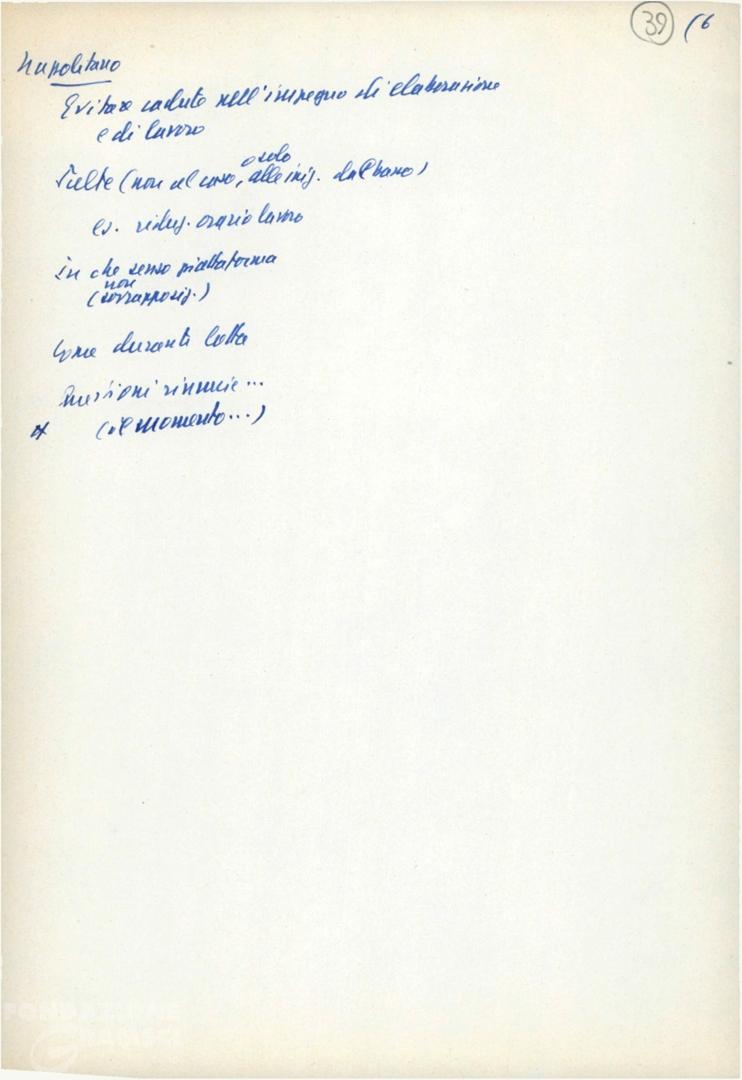 39 (6
Napolitano
Evitare cadute nell'impegno di elaborazione
e di lavoro
Scelte (non al caso, o solo alle iniz. dal basso)
es. riduz. orario lavoro
In che senso piattaforma
(non sovrapposiz.)
Come durante lotta
rinuncie...
(il momento...)